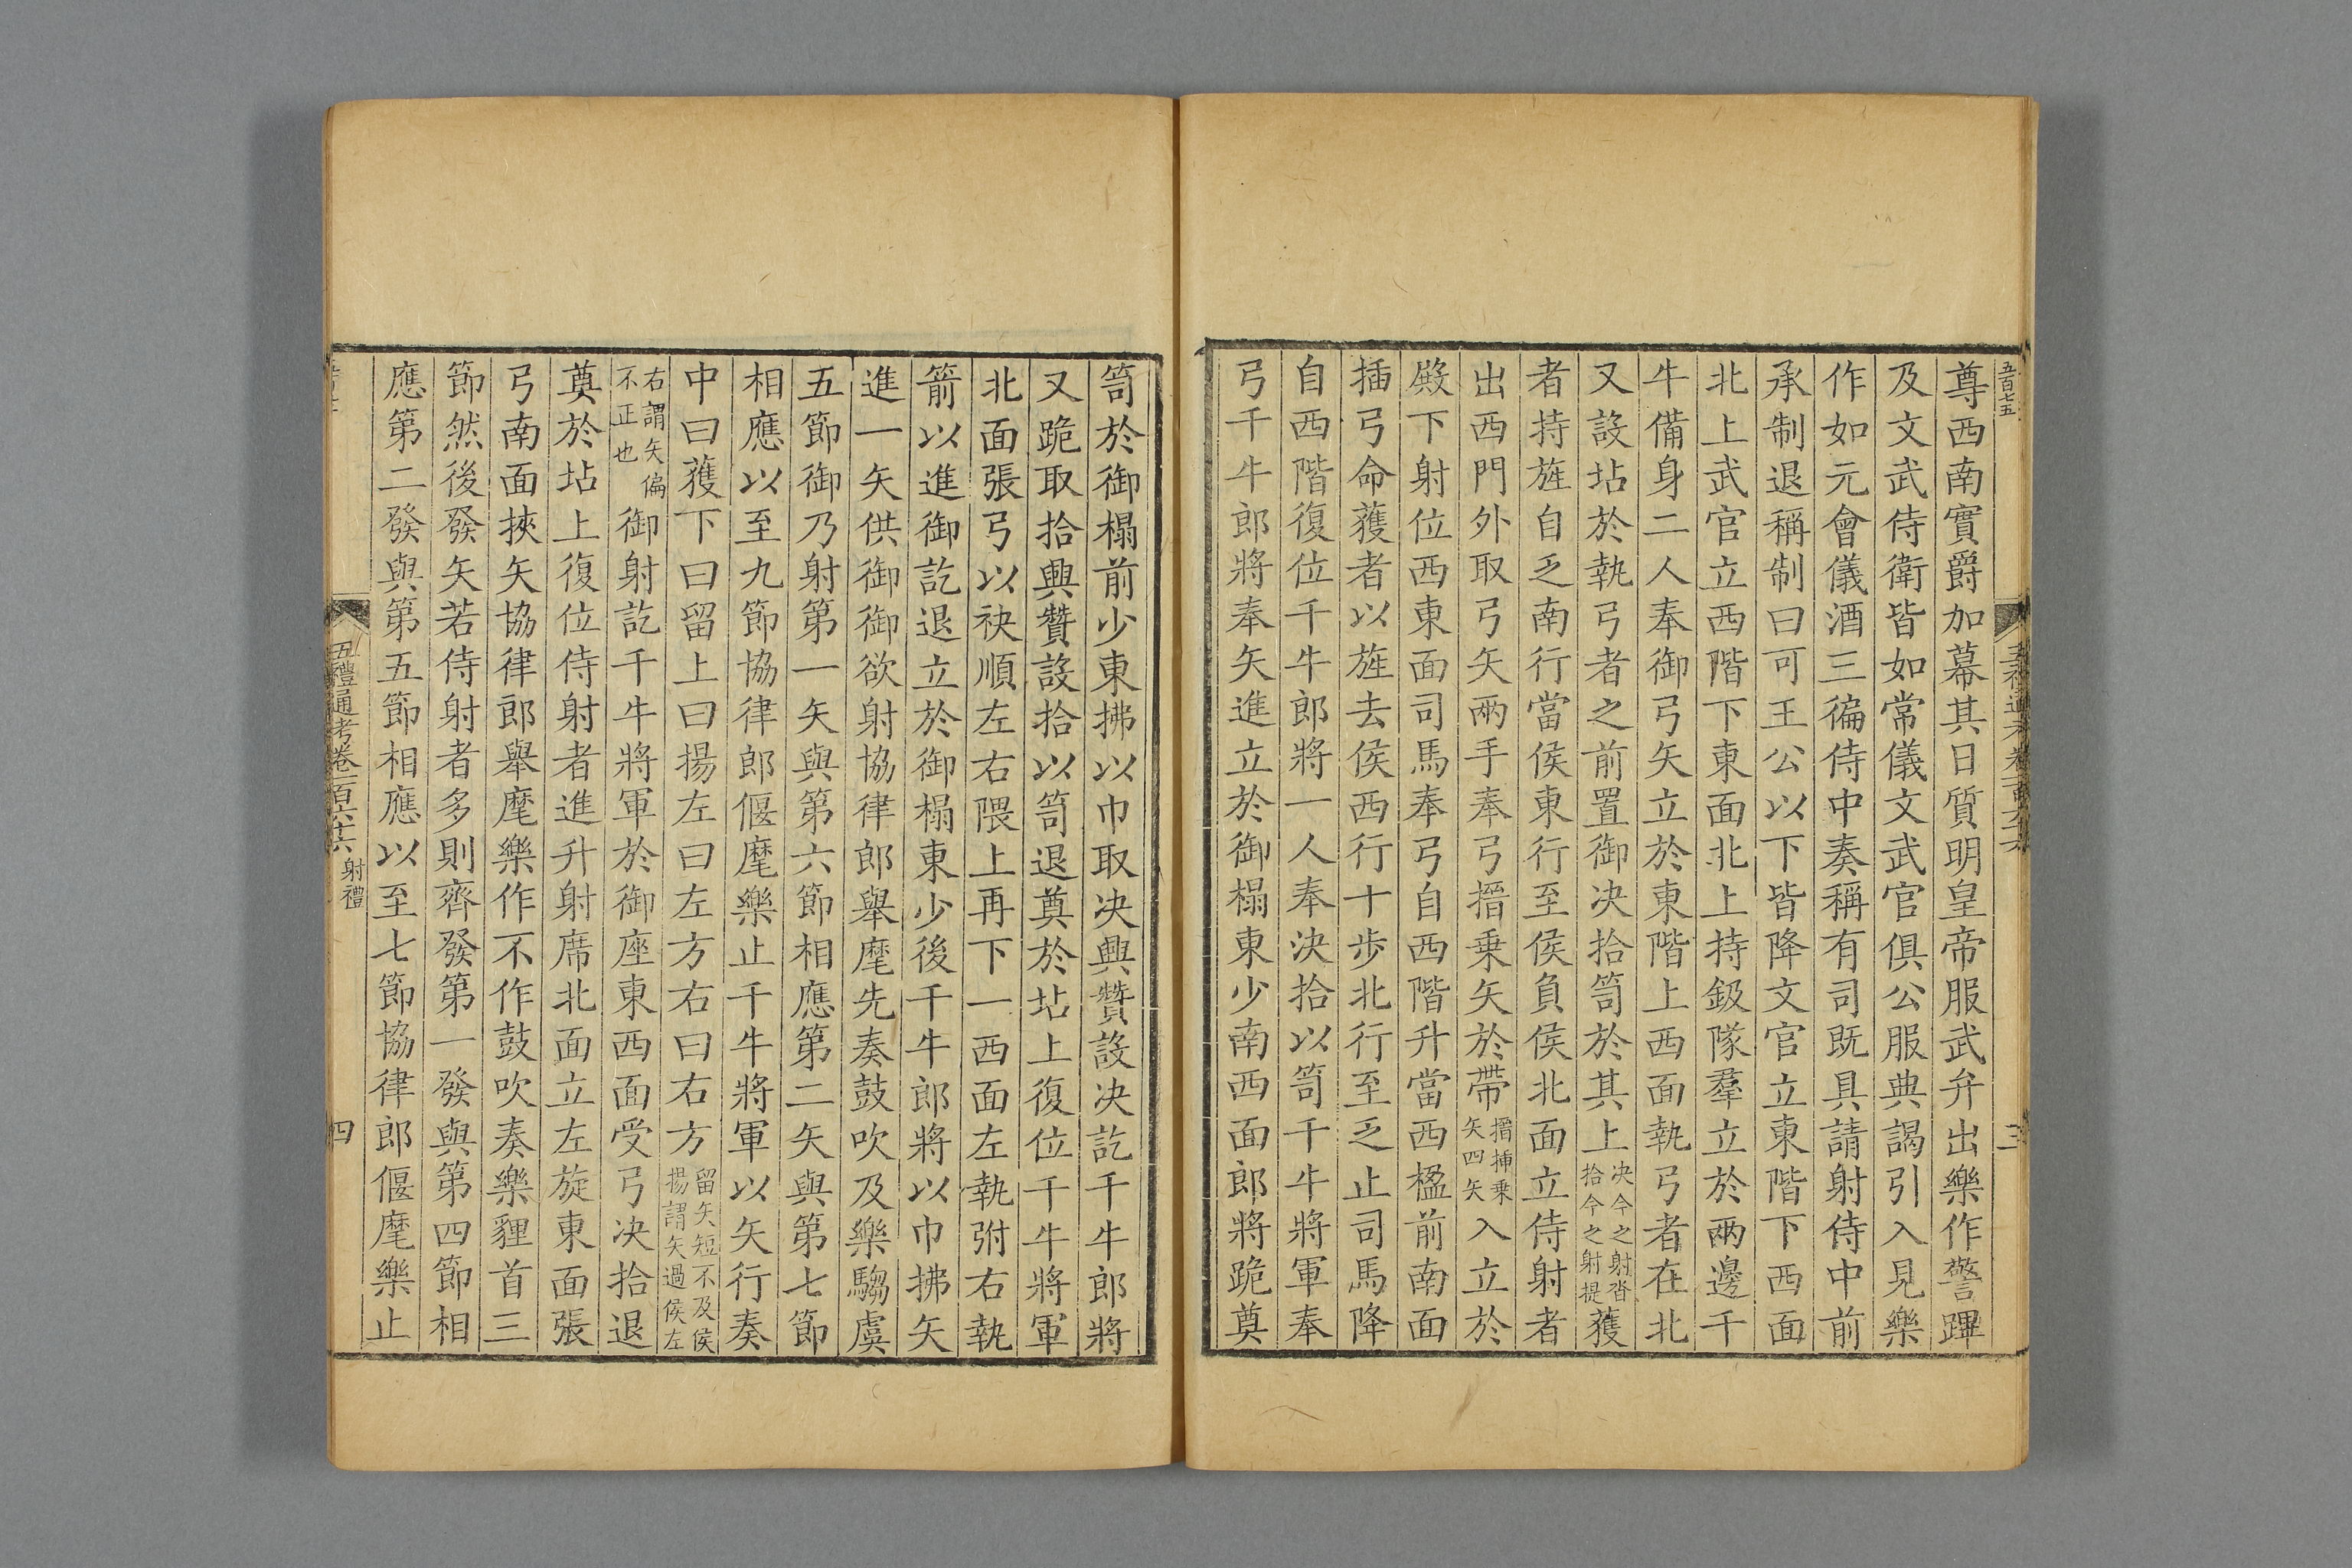 五百七五
尊西南實爵加幕其日質明皇帝服武弁出樂作警蹕
及文武侍衛皆如常儀文武官俱公服典謁引入見樂
作如元會儀酒三徧侍中奏稱有司既具請射侍中前
承制退稱制曰可王公以下皆降文官立東階下西面
北上武官立西階下東面北上持鈒隊羣立於兩邊千
牛備身二人奉御弓矢立於東階上西面執弓者在北
又設坫於執弓者之前置御決拾笥於其上決今之射沓拾今之射提獲
者持旌自乏南行當侯東行至侯負侯北面立侍射者
出西門外取弓矢兩手奉弓搢乗矢於帶搢揷乗矢四矢入立於
殿下射位西東面司馬奉弓自西階升當西楹前南面
揷弓命獲者以旌去侯西行十步北行至乏止司馬降
自西階復位千牛郎將一人奉決拾以笥千牛將軍奉
弓千牛郎將奉矢進立於御榻東少南西面郎將跪奠
笥於御榻前少東拂以巾取決興贊設決訖千牛郎將
又跪取拾興贊設拾以笥退奠於坫上復位千牛將軍
北面張弓以袂順左右隈上再下一西面左執弣右執
簫以進御訖退立於御榻東少後千牛郎將以巾拂矢
進一矢供御御欲射協律郎舉麾先奏鼓吹及樂騶虞
五節御乃射第一矢與第六節相應第二矢與第七節
相應以至九節協律郎偃麾樂止千牛將軍以矢行奏
中曰獲下曰留上曰揚左曰左方右曰右方留矢短不及侯揚謂矢過侯左
右謂矢偏不正也御射訖千牛將軍於御座東西面受弓決拾退
奠於坫上復位侍射者進升射席北面立左旋東面張
弓南面挾矢協律郎舉麾樂作不作鼓吹奏樂貍首三
節然後發矢若侍射者多則齊發第一發與第四節相
應第二發與第五節相應以至七節協律郎偃麾樂止
五禮通考卷一百六十六 射禮
四